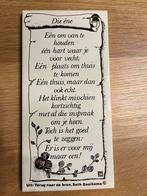 Die éne
Eén om van te
houden
één hart waar je
voor vecht,
Eén plaats om thuis
te komen
Eén thuis, maar dan
ook echt.
Het klinkt misschien
kortzichtig
met al die inspraak
om je heen.
Toch is het goed
te zeggen:
Er is er voor mij
maar een!
Uit: Terug naar de bron,